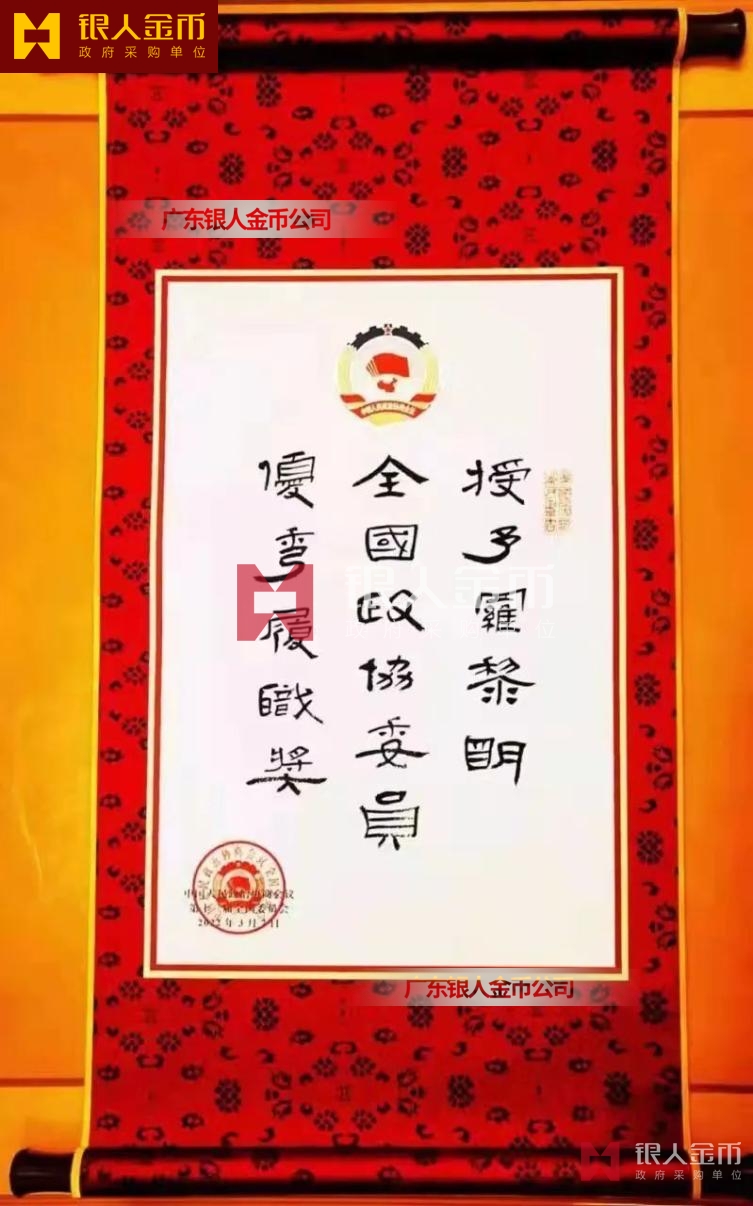 银人金币
政府采购单位
广东银人金币公司
授予羅黎明
全國政協委員
優秀履職獎
银人金币
政府采购单位
中国人民政治协商会议
第十三届全国委员会
2022年3月7日
广东银人金币公司
银人金币
政府采购单位